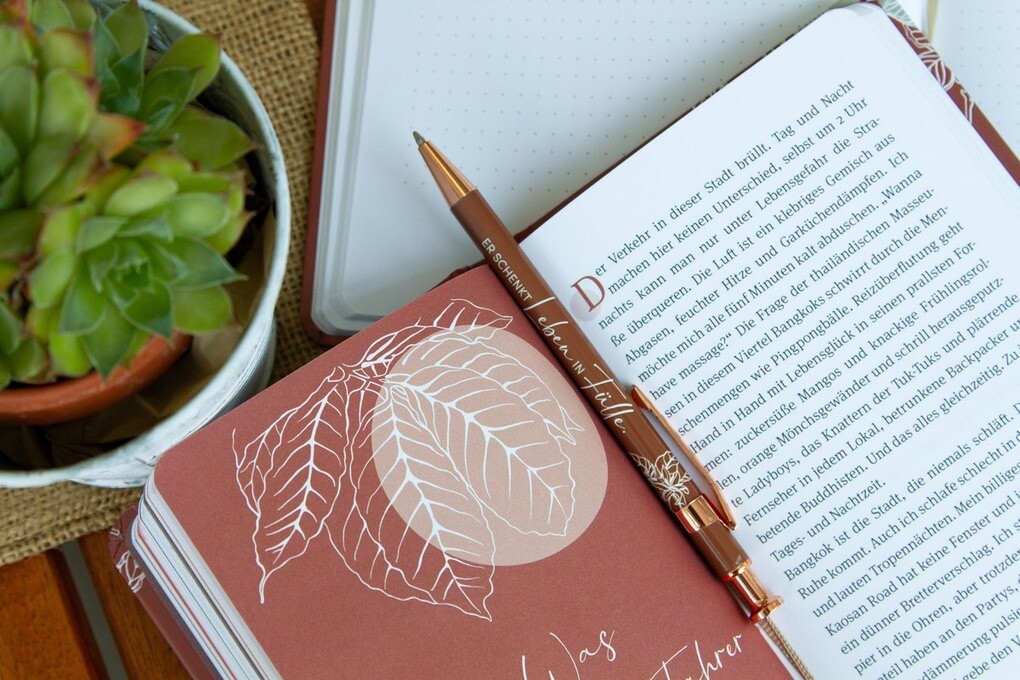 ERSCHENKT Leben IN Fülle.
Was
Der Verkehr in dieser Stadt brüllt. Tag und Nacht
machen hier keinen Unterschied, selbst um 2 Uhr
nachts kann man nur unter Lebensgefahr die Stra-
ße überqueren. Die Luft ist ein klebriges Gemisch aus
Abgasen, feuchter Hitze und Garküchendämpfen. Ich
möchte mich alle fünf Minuten kalt abduschen. „Wanna
have massage?“ Die Frage der thailändischen Masseu-
sen in diesem Viertel Bangkoks schwirrt durch die Men-
schenmengen wie Pingpongbälle. Reizüberflutung geht
Hand in Hand mit Lebensglück in seinen prallsten For-
men: zuckersüße Mangos und knackige Frühlingsrol-
orange Mönchsgewänder und schrill herausgeputz-
te Ladyboys, das Knattern der Tuk-Tuks und plärrende
Fernseher in jedem Lokal, betrunkene Backpacker
betende Buddhisten. Und das alles gleichzeitig. Zu
Tages- und Nachtzeit.
Bangkok ist die Stadt, die niemals schläft.
Ruhe kommt. Auch ich schlafe schlecht in
und lauten Tropennächten. Mein billiges
Kaosan Road hat keine Fenster und
ein dünner Bretterverschlag. Ich
pier in die Ohren, aber trotzdem
haben an den Partys,
pulsie